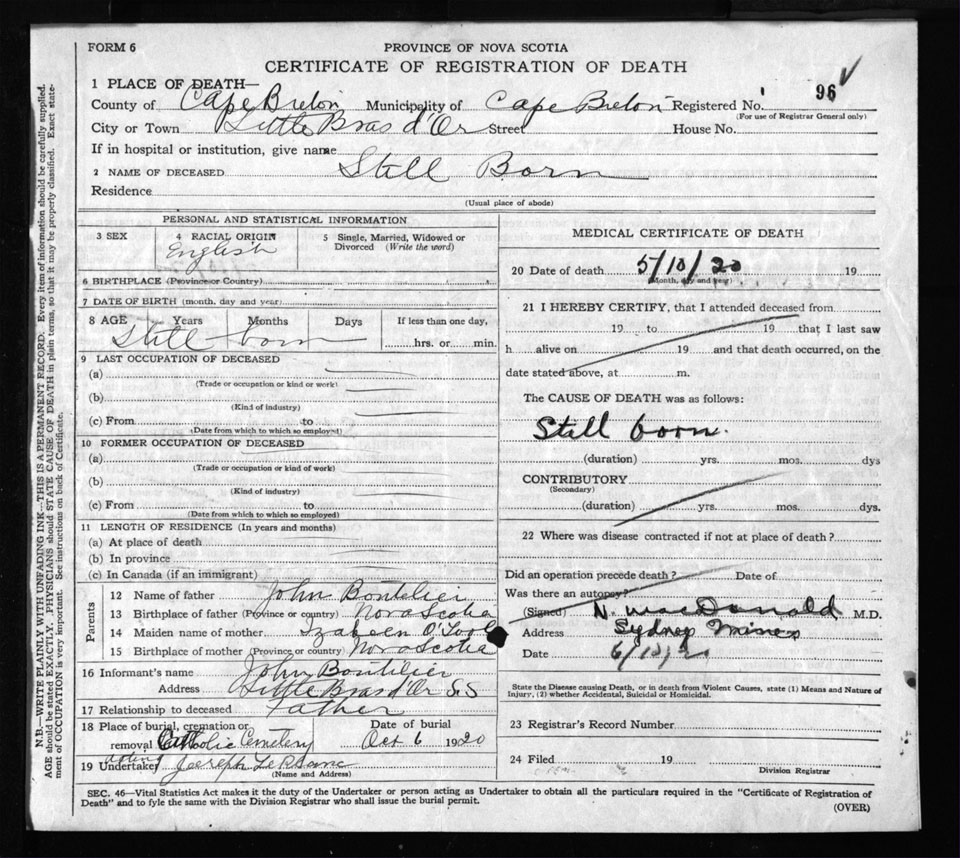 FORM 6
PROVINCE OF NOVA SCOTIA
CERTIFICATE OF REGISTRATION OF DEATH
1 PLACE OF DEATH—
County of Cape Breton Municipality of Cape Breton Registered No. 96
(For use of Registrar General only)
City or Town Little Bras d'Or Street House No.
If in hospital or institution, give name
2 NAME OF DECEASED Still Born
Residence
(Usual place of abode)
N.B.—WRITE PLAINLY WITH UNFADING INK—THIS IS A PERMANENT RECORD. Every item of information should be carefully supplied.
AGE should be stated EXACTLY. PHYSICIANS should STATE CAUSE OF DEATH in plain terms, so that it may be properly classified. Exact state-
ment of OCCUPATION is very important. See instructions on back of Certificate.
PERSONAL AND STATISTICAL INFORMATION
3 SEX 4 RACIAL ORIGIN 5 Single, Married, Widowed or
Divorced (Write the word)
English
6 BIRTHPLACE (Province or Country)
7 DATE OF BIRTH (month, day and year)
8 AGE Years Months Days If less than one day,
Still born hrs. or min.
9 LAST OCCUPATION OF DECEASED
(a)
(Trade or occupation or kind or work)
(b)
(Kind of industry)
(c) From to
(Date from which to which so employed)
10 FORMER OCCUPATION OF DECEASED
(a)
(Trade or occupation or kind of work)
(b)
(Kind of industry)
(c) From to
(Date from which to which so employed)
11 LENGTH OF RESIDENCE (In years and months)
(a) At place of death
(b) In province
(c) In Canada (if an immigrant)
Parents
12 Name of father John Bontilier
13 Birthplace of father (Province or country) Nova Scotia
14 Maiden name of mother O'Tool
15 Birthplace of mother (Province or country) Nova Scotia
16 Informant's name John Bontilier
Address Little Bras d'Or
17 Relationship to deceased Father
18 Place of burial, cremation or Date of burial
removal Catholic Cemetery Oct 6 1920
acting
19 Undertaker Joseph
(Name and Address)
MEDICAL CERTIFICATE OF DEATH
20 Date of death 5/10/20 19
(Month, day and year)
21 I HEREBY CERTIFY, that I attended deceased from
19 to 19 that I last saw
h alive on 19 and that death occurred, on the
date stated above, at m.
The CAUSE OF DEATH was as follows:
Still born.
(duration) yrs. mos. dys
CONTRIBUTORY
(Secondary)
(duration) yrs. mos. dys.
22 Where was disease contracted if not at place of death?
Did an operation precede death? Date of
Was there an autopsy?
(Signed) N. MacDonald M.D.
Address Sydney Mines
Date 6/10/20
State the Disease causing Death, or in death from Violent Causes, state (1) Means and Nature of
Injury, (2) whether Accidental, Suicidal or Homicidal.
23 Registrar's Record Number
24 Filed 19
Division Registrar
SEC. 46—Vital Statistics Act makes it the duty of the Undertaker or person acting as Undertaker to obtain all the particulars required in the "Certificate of Registration of
Death" and to fyle the same with the Division Registrar who shall issue the burial permit.
(OVER)